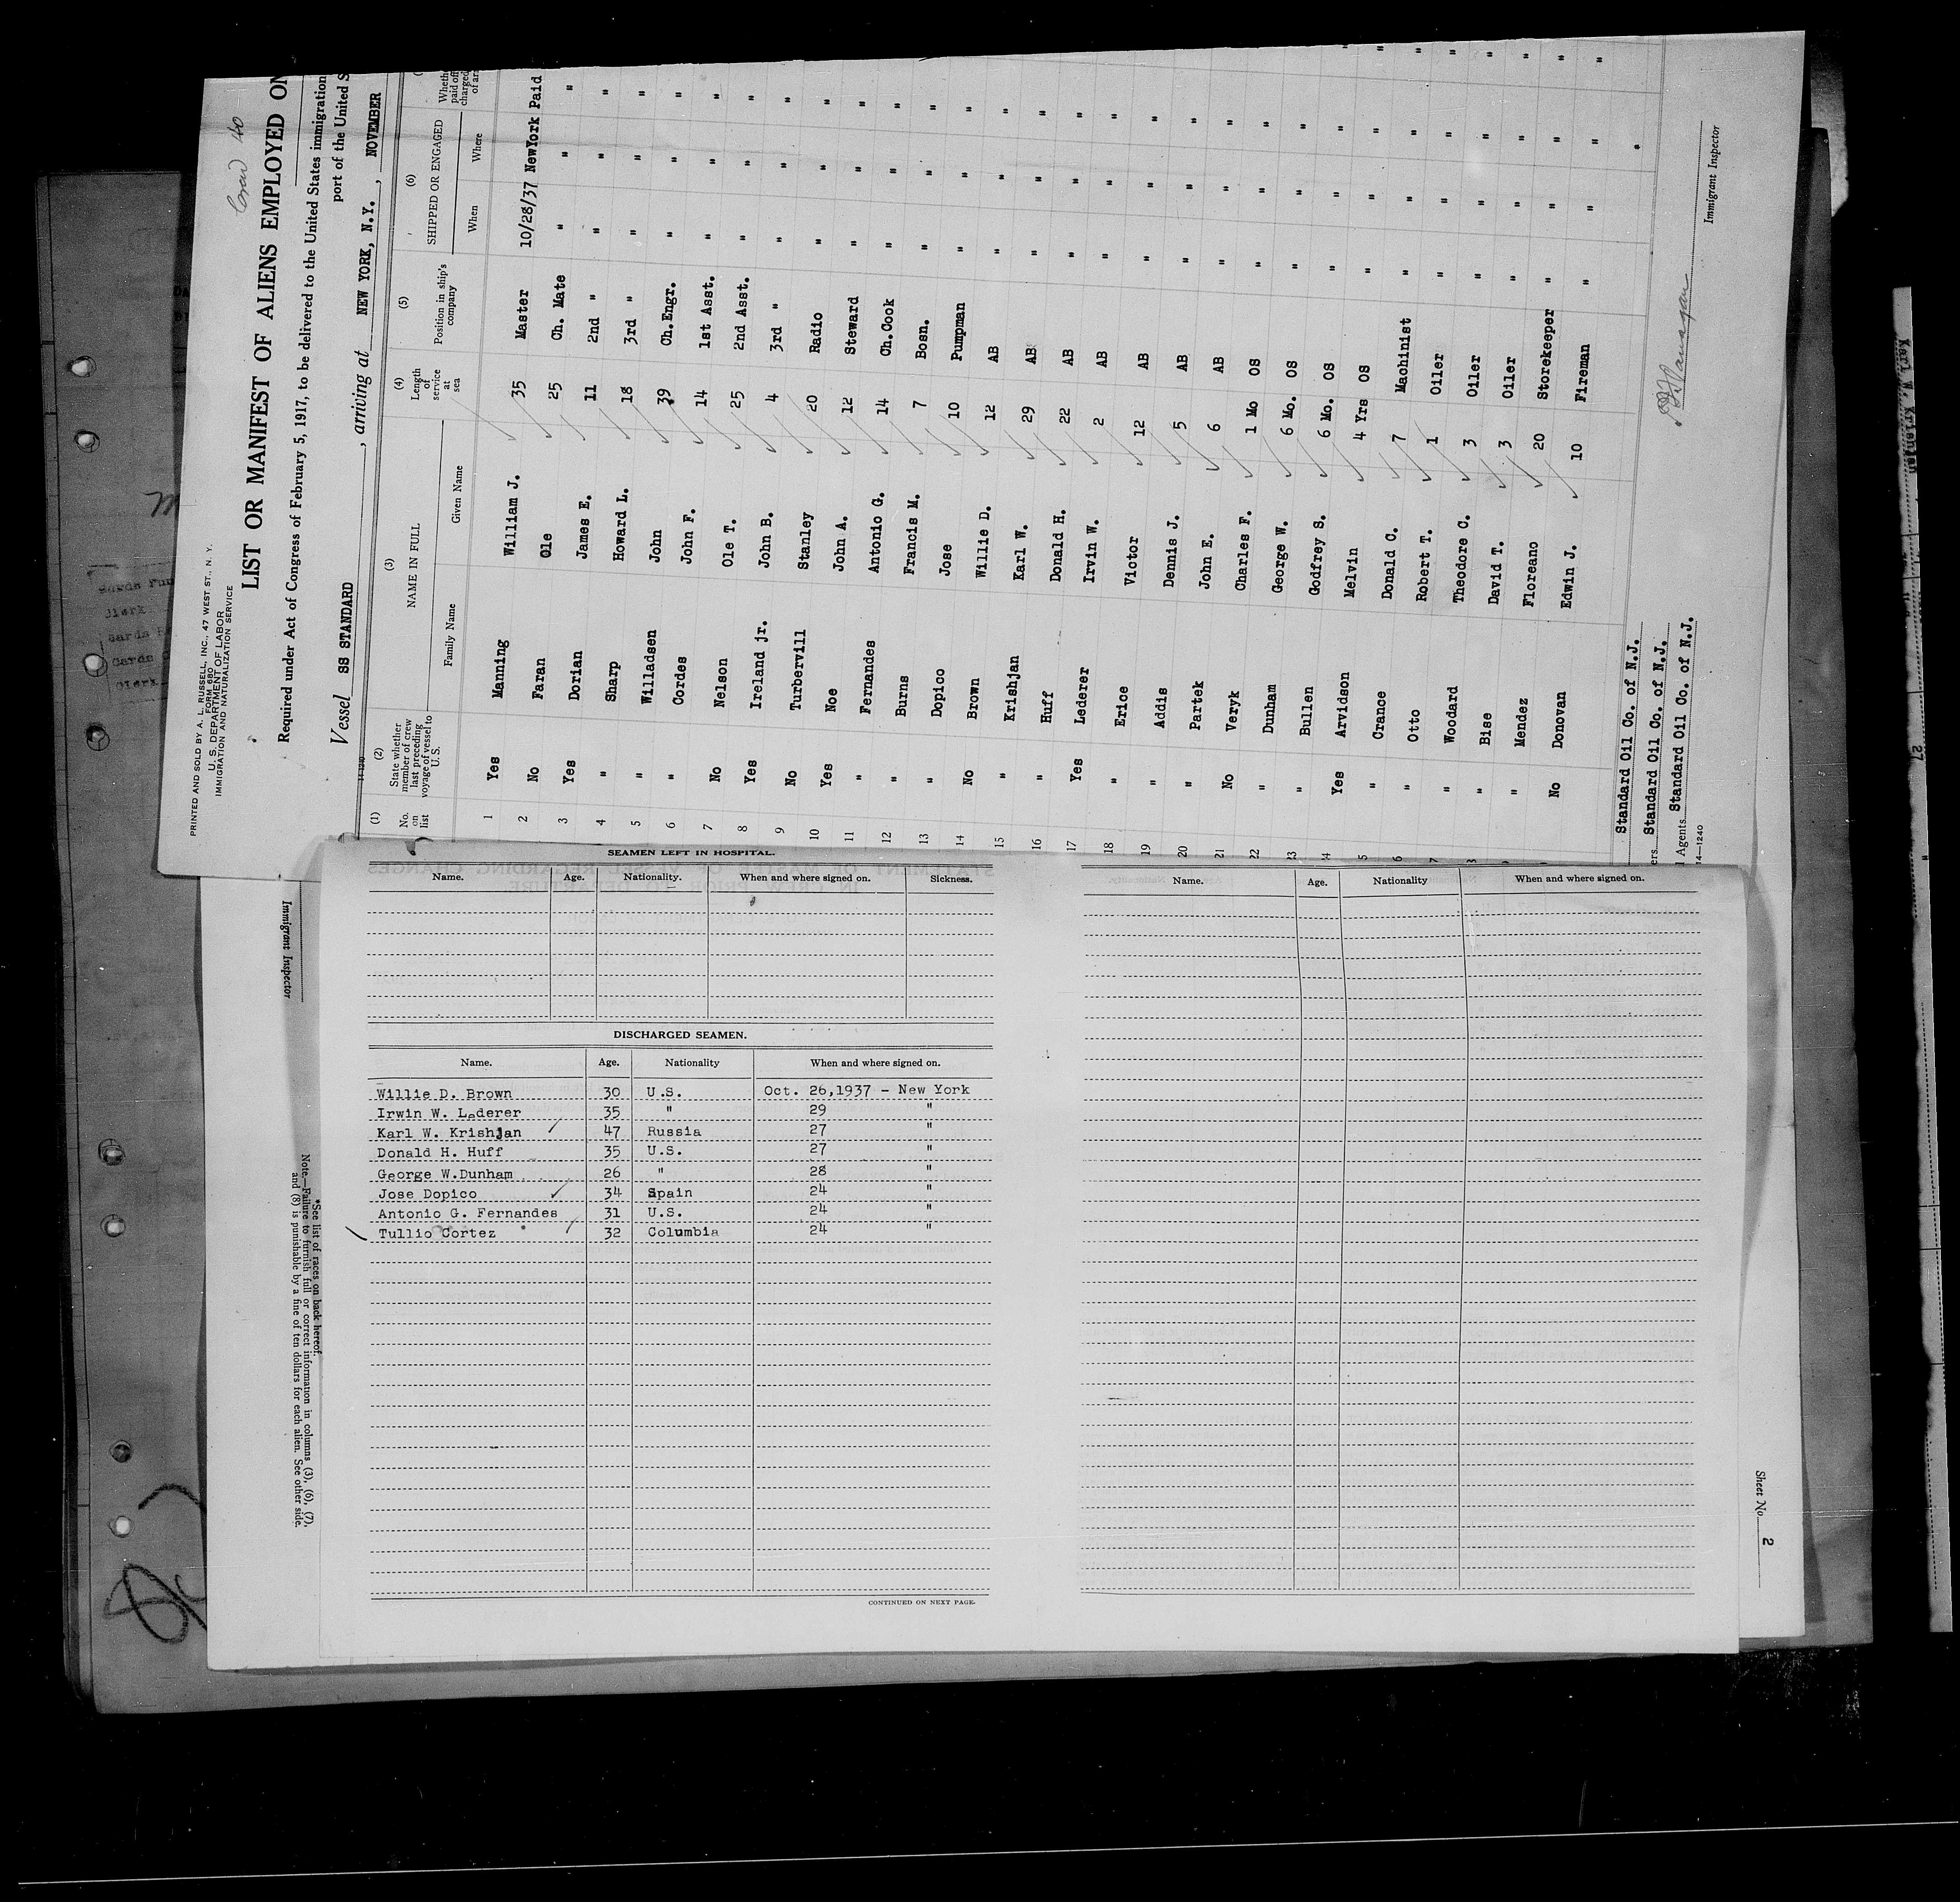 PRINTED AND SOLD BY A. L. RUSSELL, INC., 47 WEST ST., N. Y.
FORM 680
U. S. DEPARTMENT OF LABOR
IMMIGRATION AND NATURALIZATION SERVICE
Crew 40
LIST OR MANIFEST OF ALIENS EMPLOYED ON
Required under Act of Congress of February 5, 1917, to be delivered to the United States immigration
port of the United S
Vessel SS STANDARD , arriving at NEW YORK, N.Y. , NOVEMBER
(1) No. on list
(2) State whether member of crew last preceding voyage of vessel to U.S.
(3) NAME IN FULL Family Name Given Name
(4) Length of service at sea
(5) Position in ship's company
(6) SHIPPED OR ENGAGED When Where
1 Yes Manning William J. 35 Master 10/28/37 NewYork Paid
2 No Faran Ole 25 Ch. Mate " " "
3 Yes Dorian James E. 11 2nd " " " "
4 " Sharp Howard L. 18 3rd " " " "
5 " Willadsen John 39 Ch.Engr. " " "
6 " Cordes John F. 14 1st Asst. " " "
7 No Nelson Ole T. 25 2nd Asst. " " "
8 Yes Ireland jr. John B. 4 3rd " " " "
9 No Turbervill Stanley 20 Radio " " "
10 Yes Noe John A. 12 Steward " " "
11 " Fernandes Antonio G. 14 Ch.Cook " " "
12 " Burns Francis M. 7 Bosn. " " "
13 " Dopico Jose 10 Pumpman " " "
14 No Brown Willie D. 12 AB " " "
15 " Krishjan Karl W. 29 AB " " "
16 " Huff Donald H. 22 AB " " "
17 Yes Lederer Irvin W. 2 AB " " "
18 " Erice Victor 12 AB " " "
19 " Addis Dennis J. 5 AB " " "
20 " Partek John E. 6 AB " " "
21 No Veryk Charles F. 1 Mo OS " " "
22 " Dunham George W. 6 Mo. OS " " "
23 " Bullen Godfrey S. 6 Mo. OS " " "
24 Yes Arvidson Melvin 4 Yrs OS " " "
5 " Crance Donald C. 7 Machinist " " "
6 " Otto Robert T. 1 Oiler " " "
7 " Woodard Theodore C. 3 Oiler " " "
8 " Bise David T. 3 Oiler " " "
" Mendez Floreano 20 Storekeeper " " "
No Donovan Edwin J. 10 Fireman " " "
Standard Oil Co. of N.J.
ers Standard Oil Co. of N.J.
l Agents Standard Oil Co. of N.J.
14—1240
Immigrant Inspector
SEAMEN LEFT IN HOSPITAL.
Name. Age. Nationality. When and where signed on. Sickness.
DISCHARGED SEAMEN.
Name. Age. Nationality When and where signed on.
Willie D. Brown 30 U.S. Oct. 26,1937 - New York
Irwin W. Lederer 35 " 29 "
Karl W. Krishjan 47 Russia 27 "
Donald H. Huff 35 U.S. 27 "
George W.Dunham 26 " 28 "
Jose Dopico 34 Spain 24 "
Antonio G. Fernandes 31 U.S. 24 "
Tullio Cortez 32 Columbia 24 "
CONTINUED ON NEXT PAGE.
Name. Age. Nationality When and where signed on.
Immigrant Inspector
*See list of races on back hereof.
Note.—Failure to furnish full or correct information in columns (3), (6), (7),
and (8) is punishable by a fine of ten dollars for each alien. See other side.
Sheet No. 2
Karl W. Krishjan
27